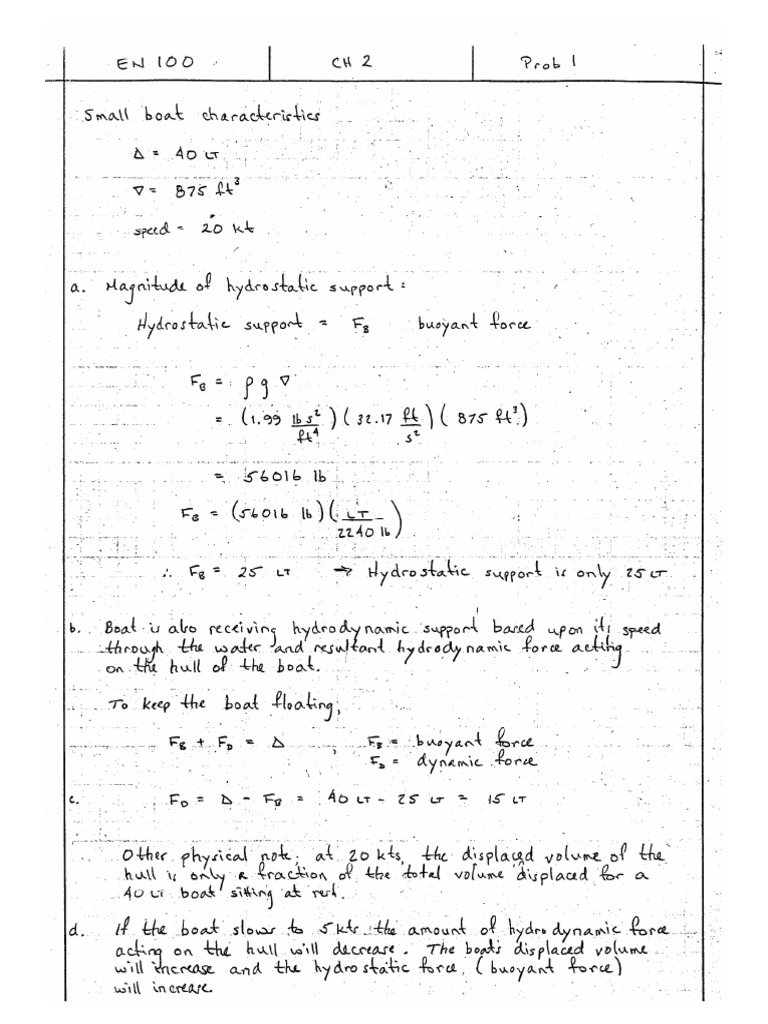 EN 100 CH 2 Prob 1
Small boat characteristics
Δ = 40 LT
∇ = 875 ft³
speed = 20 kt
a. Magnitude of hydrostatic support:
Hydrostatic support = F_B buoyant force
F_B = ρ g ∇
= (1.99 lb s²/ft⁴) (32.17 ft/s²) (875 ft³)
= 56016 lb
F_B = (56016 lb) (LT/2240 lb)
∴ F_B = 25 LT → Hydrostatic support is only 25 LT
b. Boat is also receiving hydrodynamic support based upon its speed
through the water and resultant hydrodynamic force acting
on the hull of the boat.
To keep the boat floating,
F_B + F_D = Δ , F_B = buoyant force
F_D = dynamic force
c. F_D = Δ - F_B = 40 LT - 25 LT = 15 LT
Other physical note; at 20 kts, the displaced volume of the
hull is only a fraction of the total volume displaced for a
40 LT boat sitting at rest.
d. If the boat slows to 5 kts the amount of hydrodynamic force
acting on the hull will decrease. The boats displaced volume
will increase and the hydrostatic force, (buoyant force)
will increase.